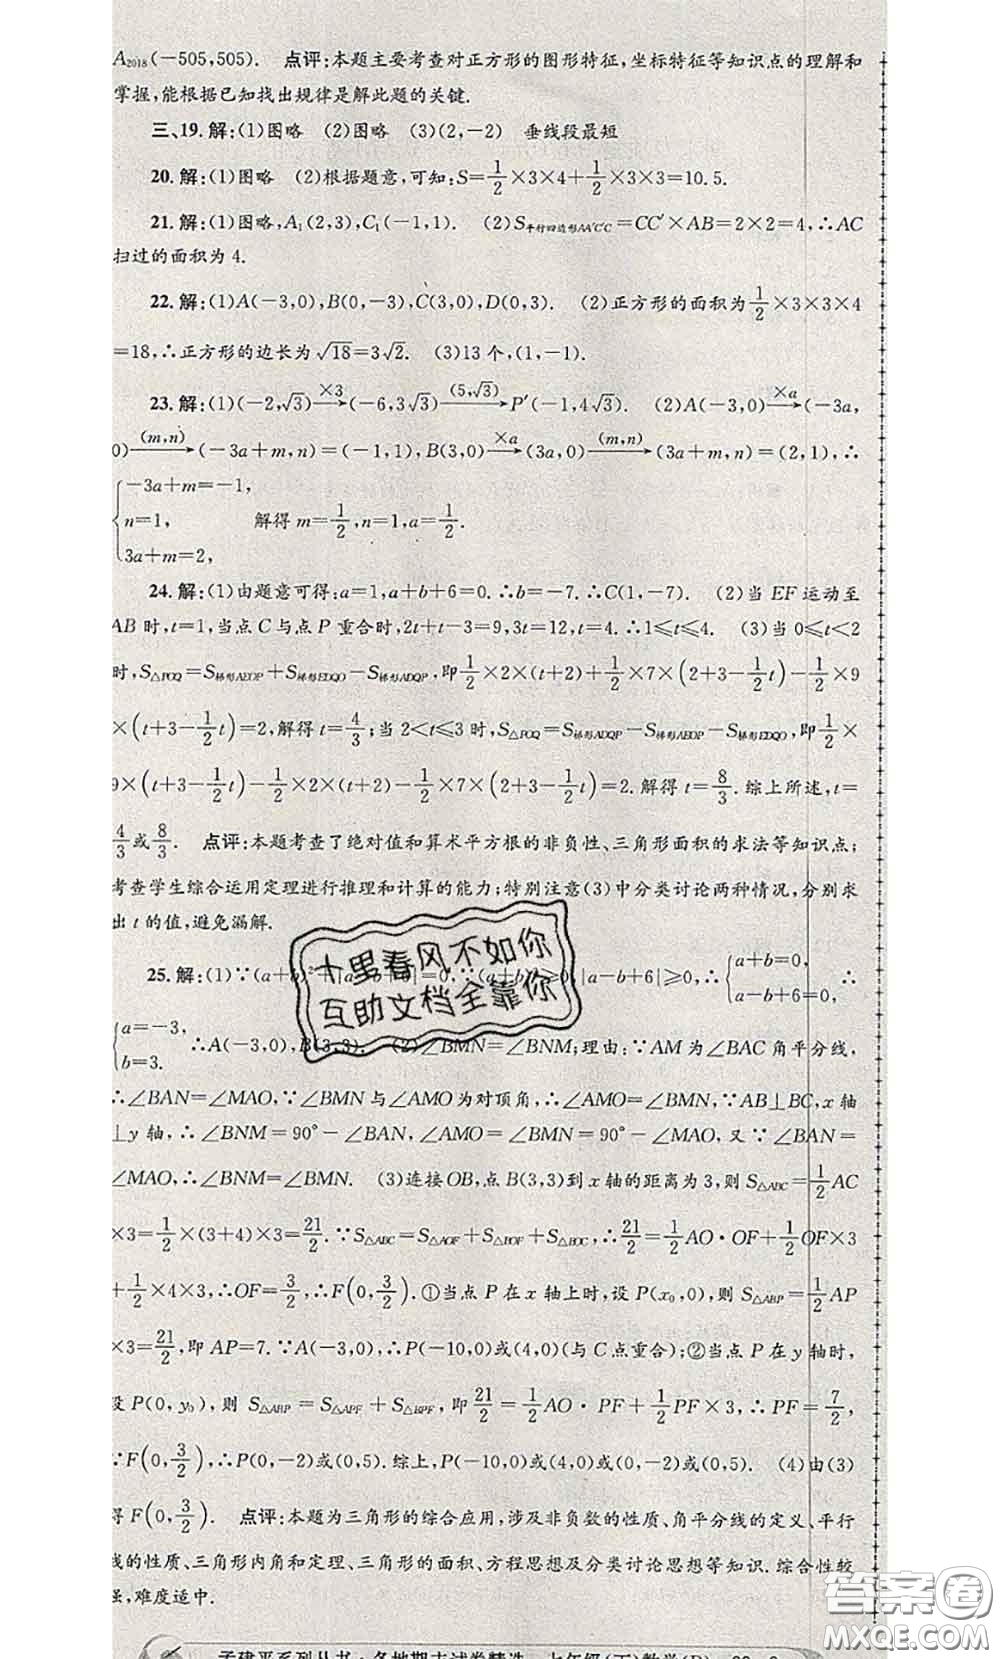 A₂₀₁₈(−505,505). 点评:本题主要考查对正方形的图形特征,坐标特征等知识点的理解和
掌握,能根据已知找出规律是解此题的关键.
三、19.解:(1)图略 (2)图略 (3)(2,−2) 垂线段最短
20.解:(1)图略 (2)根据题意,可知:S=1/2×3×4+1/2×3×3=10.5.
21.解:(1)图略,A₁(2,3),C₁(−1,1). (2)S平行四边形AA′C′C=CC′×AB=2×2=4,∴AC
扫过的面积为4.
22.解:(1)A(−3,0),B(0,−3),C(3,0),D(0,3). (2)正方形的面积为1/2×3×3×4
=18,∴正方形的边长为√18=3√2. (3)13个,(1,−1).
23.解:(1)(−2,√3) —×3→ (−6,3√3) —(5,√3)→ P′(−1,4√3). (2)A(−3,0) —×a→ (−3a,
0) —(m,n)→ (−3a+m,n)=(−1,1),B(3,0) —×a→ (3a,0) —(m,n)→ (3a+m,n)=(2,1),∴
{−3a+m=−1,
n=1, 解得m=1/2,n=1,a=1/2.
3a+m=2,
24.解:(1)由题意可得:a=1,a+b+6=0.∴b=−7.∴C(1,−7). (2)当EF运动至
AB时,t=1,当点C与点P重合时,2t+t−3=9,3t=12,t=4.∴1≤t≤4. (3)当0≤t<2
时,S△PCQ=S梯形AEOP+S梯形EDQO−S梯形ADQP,即1/2×2×(t+2)+1/2×7×(2+3−1/2t)−1/2×9
×(t+3−1/2t)=2,解得t=4/3;当2<t≤3时,S△PCQ=S梯形ADQP−S梯形AEOP−S梯形EDQO,即1/2×
9×(t+3−1/2t)−1/2×2×(t+2)−1/2×7×(2+3−1/2t)=2.解得t=8/3.综上所述,t=
4/3或8/3. 点评:本题考查了绝对值和算术平方根的非负性、三角形面积的求法等知识点;
考查学生综合运用定理进行推理和计算的能力;特别注意(3)中分类讨论两种情况,分别求
出t的值,避免漏解.
25.解:(1)∵(a+b)²+|a−b+6|=0.∵(a+b)²≥0,|a−b+6|≥0,∴{a+b=0,
a−b+6=0, ∴
{a=−3,
b=3. ∴A(−3,0),B(3,3). (2)∠BMN=∠BNM;理由:∵AM为∠BAC角平分线,
∴∠BAN=∠MAO,∵∠BMN与∠AMO为对顶角,∴∠AMO=∠BMN,∵AB⊥BC,x轴
⊥y轴,∴∠BNM=90°−∠BAN,∠AMO=∠BMN=90°−∠MAO,又∵∠BAN=
∠MAO,∴∠BNM=∠BMN. (3)连接OB,点B(3,3)到x轴的距离为3,则S△ABC=1/2AC
×3=1/2×(3+4)×3=21/2.∵S△ABC=S△AOF+S△BOF+S△BOC,∴21/2=1/2AO·OF+1/2OF×3
+1/2×4×3,∴OF=3/2,∴F(0,3/2).①当点P在x轴上时,设P(x₀,0),则S△ABP=1/2AP
×3=21/2,即AP=7.∵A(−3,0),∴P(−10,0)或(4,0)(与C点重合);②当点P在y轴时,
设P(0,y₀),则S△ABP=S△APF+S△BPF,即21/2=1/2AO·PF+1/2PF×3,∴PF=7/2,
∵F(0,3/2),∴P(0,−2)或(0,5).综上,P(−10,0)或(4,0)或(0,−2)或(0,5). (4)由(3)
得F(0,3/2). 点评:本题为三角形的综合应用,涉及非负数的性质、角平分线的定义、平行
线的性质、三角形内角和定理、三角形的面积、方程思想及分类讨论思想等知识.综合性较
强,难度适中.
十里春风不如你
互助文档全靠你
答案卷
MXQE.COM
孟建平系列丛书·各地期末试卷精选 七年级(下)数学(R)